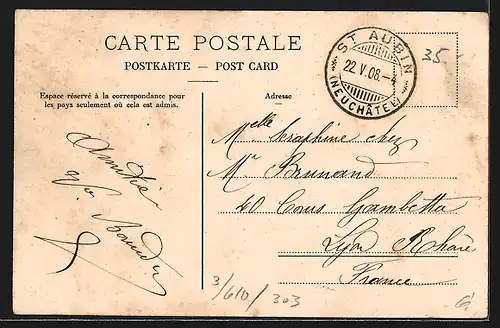 CARTE POSTALE
POSTKARTE — POST CARD
Espace réservé à la correspondance pour
les pays seulement où cela est admis.
Adresse
ST AUBIN
22.V.08.-4
(NEUCHÂTEL)
35-
Amitiés
Melle Séraphine chez
Mr Brunand
40 Cours Gambetta
Lyon Rhône
France
3/610/303